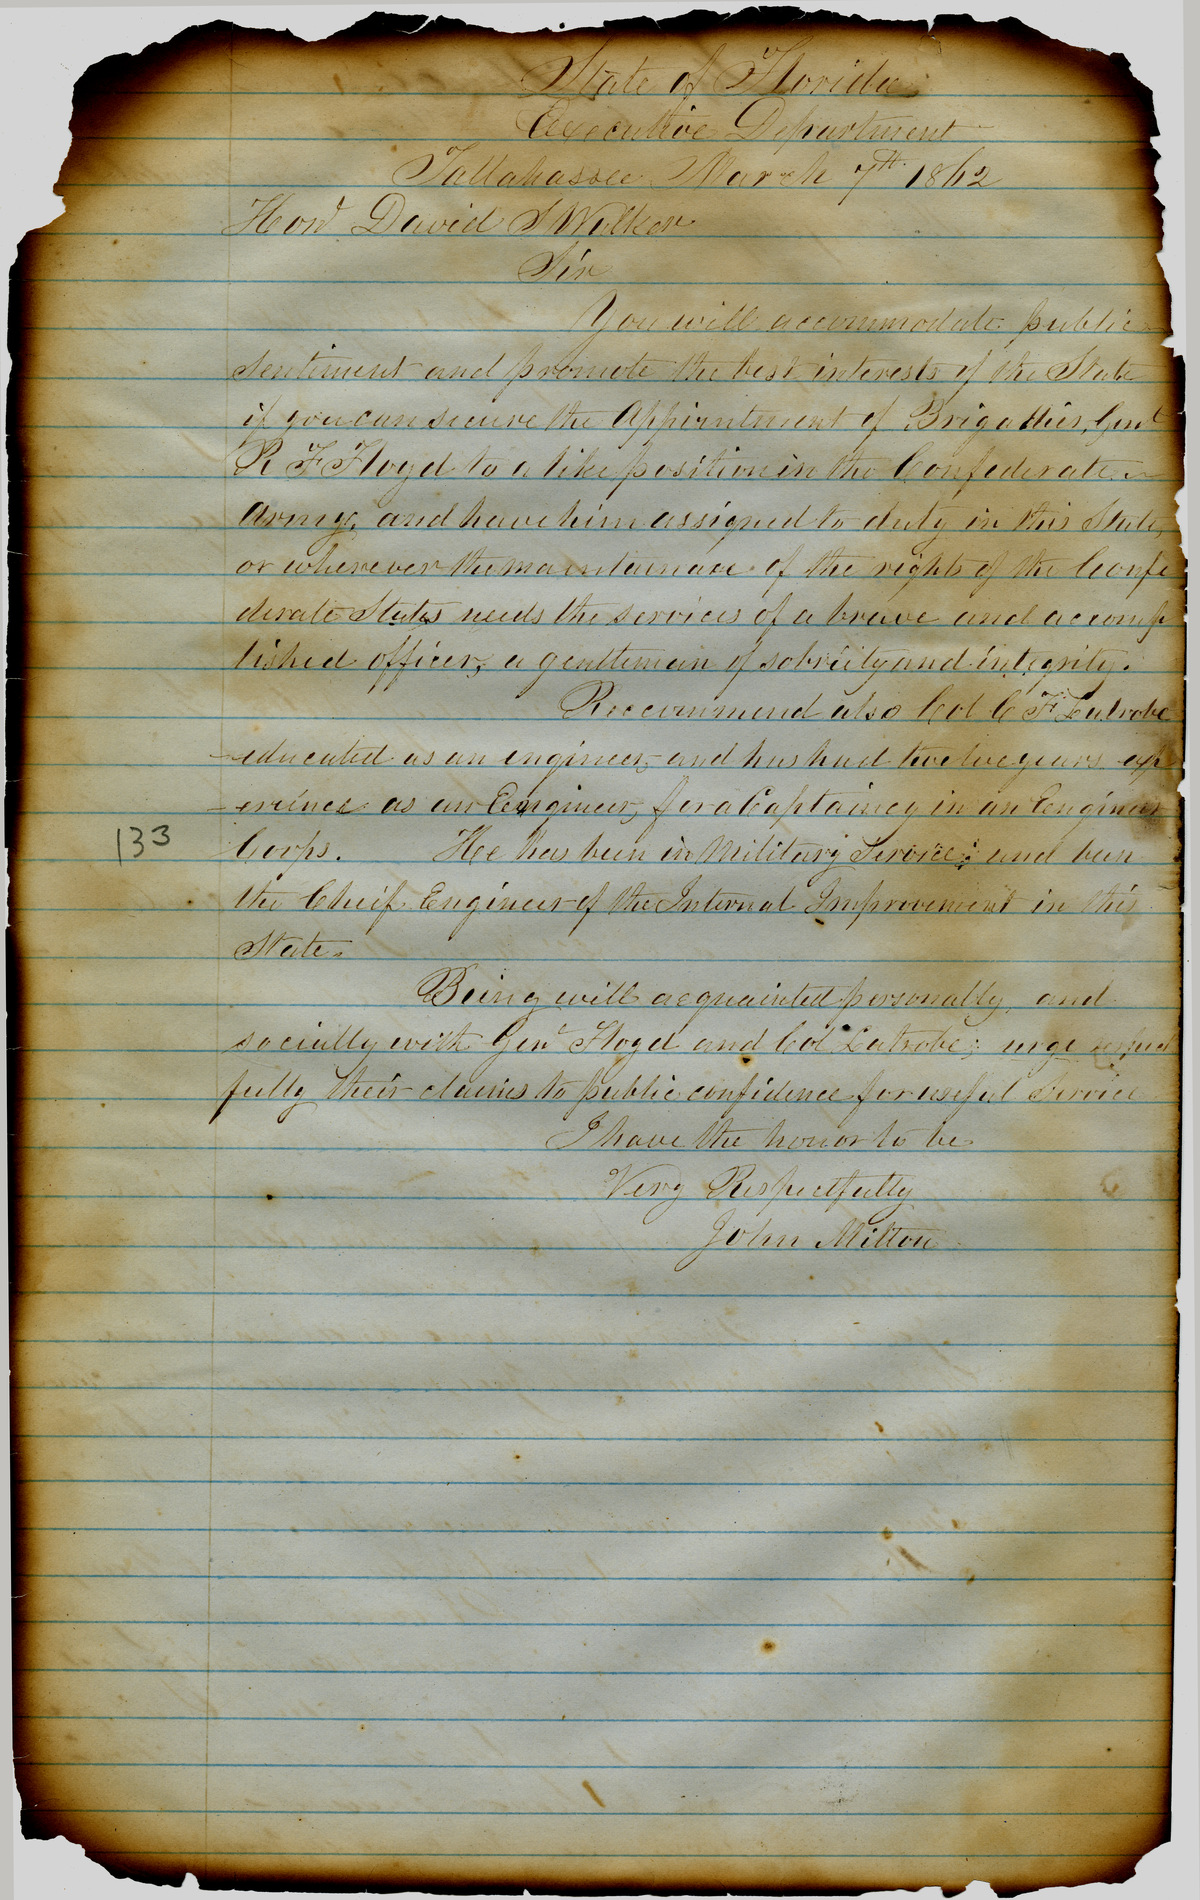 State of Florida
Executive Department
Tallahassee March 7th 1862
Hond David S Walker
Sir
You will accommodate public
sentiment and promote the best interests of the State
if you can secure the Appointment of Brigadier, Genl
R F Floyd to a like position in the Confederate
Army, and have him assigned to duty in this State,
or wherever the maintainace of the rights of the Confe
derate States needs the services of a brave and accomp
lished officer, a gentleman of sobriety and integrity.
Reccommend also Col C F Latrobe
educated as an engineer, and has had twelve years exp
erience as an Engineer, for a Captaincy in an Engineer
133
Corps. He has been in Military Service; and been
the Cheif Engineer of the Internal Improvement in this
State.
Being well acquainted personally, and
socially with Genl Floyd and Col Latrobe; urge
fully their claims to public confidence for useful Service
I have the honor to be
Very Respectfully
John Milton